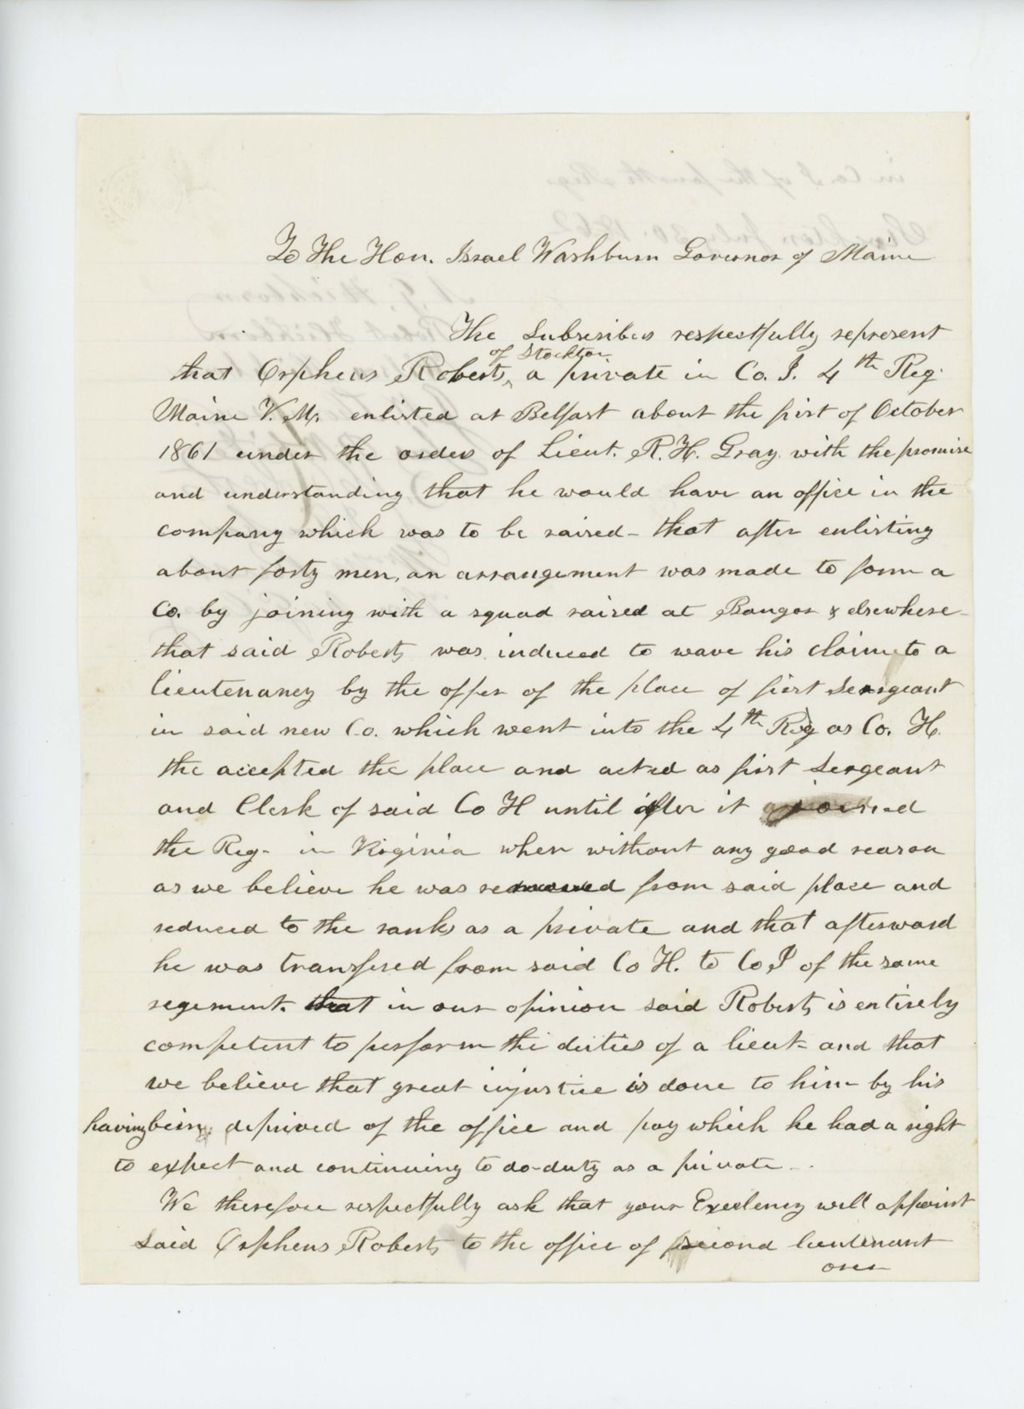 To The Hon. Israel Washburn Governor of Maine
The Subscribers respectfully represent
of Stockton
that Orpheus Roberts, a private in Co. I. 4th Reg.
Maine V. M. enlisted at Belfast about the first of October
1861 under the orders of Lieut. R. H. Gray with the promise
and understanding that he would have an office in the
company which was to be raised - that after enlisting
about forty men, an arrangement was made to form a
Co. by joining with a squad raised at Bangor & elsewhere -
that said Roberts was induced to wave his claim to a
lieutenancy by the offer of the place of first Sergeant
in said new Co. which went into the 4th Reg as Co. H.
the accepted the place and acted as first Sergeant
and Clerk of said Co H until after it joined
the Reg. in Virginia when without any good reason
as we believe he was removed from said place and
reduced to the ranks as a private and that afterward
he was transfered from said Co H. to Co I of the same
regement. that in our opinion said Roberts is entirely
competent to perform the duties of a lieut - and that
we believe that great injustice is done to him by his
having being deprived of the office and pay which he had a right
to expect and continuing to do duty as a private -.
We therefore respectfully ask that your Excelency will appoint
said Orpheus Roberts to the office of second lieutenant
over
in Co. I of the fourth Reg.
Stockton July 30. 1862